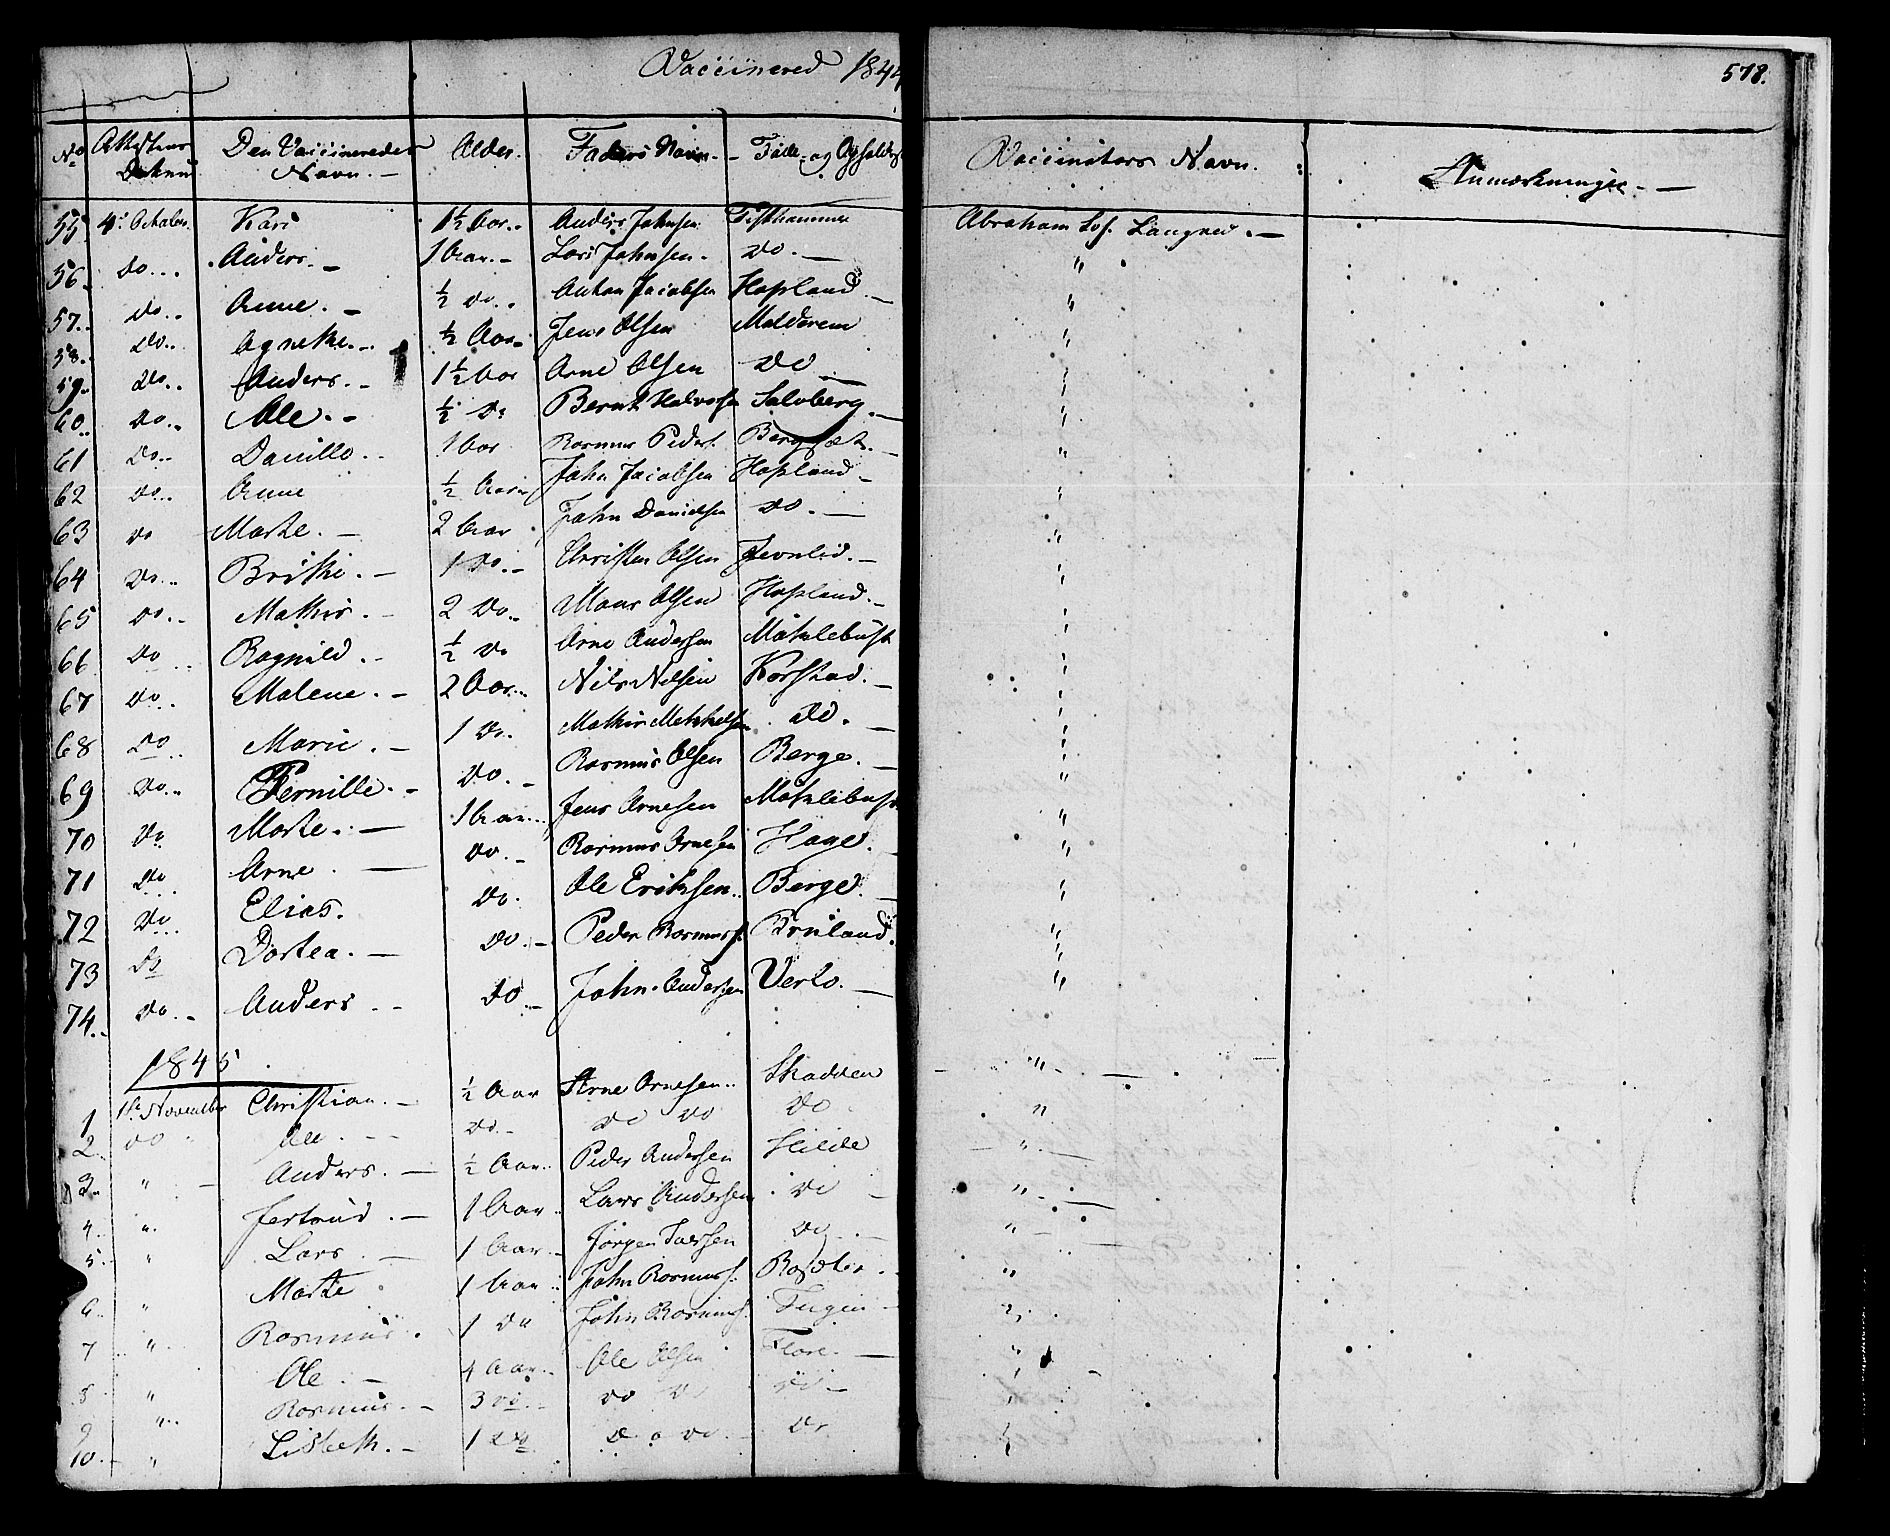 Vaccinered 1844
578.
No Attestens Datum Den Vaccineredes Navn. Alder. Faders Navn. Føde- og Opholds Vaccinators Navn. Anmærkninger.
55. 4de Octaber Kari 1½ Aar. Anders Johnsen Fisthammer Abraham Langved.
56. Do Anders. 1 Aar. Lars Johnsen. Do. "
57. Do. Anne. ½ Do. Anton Jacobsen Hopland. "
58. Do. Agnethe. ½ Aar. Jens Olsen Malderem "
59. Do. Anders. 1½ Aar Arne Olsen Do "
60. Do. Ole. ½ Do Bernt Halvorsen Solvberg. "
61 Do. Danille. 1 Aar Rasmus Peders. Bergsæt. "
62 Do. Anne ½ Aar John Jacobsen Hopland "
63 Do Marte. 2 Aar John Danielsen Do. "
64 Do. Brithe. 1 Do. Christen Olsen "
65 Do. Mathis. 2 Do. Mons Olsen Hopland. "
66 Do Ragnild. ½ Do Arne Andersen Møklebust "
67 Do. Malene. 2 Aar. Nils Nilsen Korstad. "
68 Do Marie. 1 Do. Mathis Do. "
69 Do. Pernille. Do. Rasmus Olsen Berge. "
70 Do Marte. 1 Aar. Jens Arnesen Møklebust "
71 Do Arne. Do. Rasmus Arnesen Hage. "
72 Do Elias. Do. Ole Eriksen. Berge. "
73 Do Dortea. Do. Peder Rasmuss. Bruland. "
74. Do. Anders Do John Andersen Verlo. "
1845
1 11te November Christian. ½ Aar Arne Arnesen Skadden "
2. Do Ole. Do. Do Do Do "
3. " Anders. ½ Aar. Peder Andersen Hilde "
4. " Jertrud. 1 Aar Lars Andersen Do "
5. " Lars. 1 Aar. Jørgen Do "
6 " Marte 1 Aar John Rasmuss. "
7 " Rasmus. 1 Do John Rasmuss. "
8 " Ole. 4 Aar Ole Olsen Florø. "
9 " Rasmus. 3 Do. Do Do Do "
10. " Lisbeth. 1 Do Do Do Do "